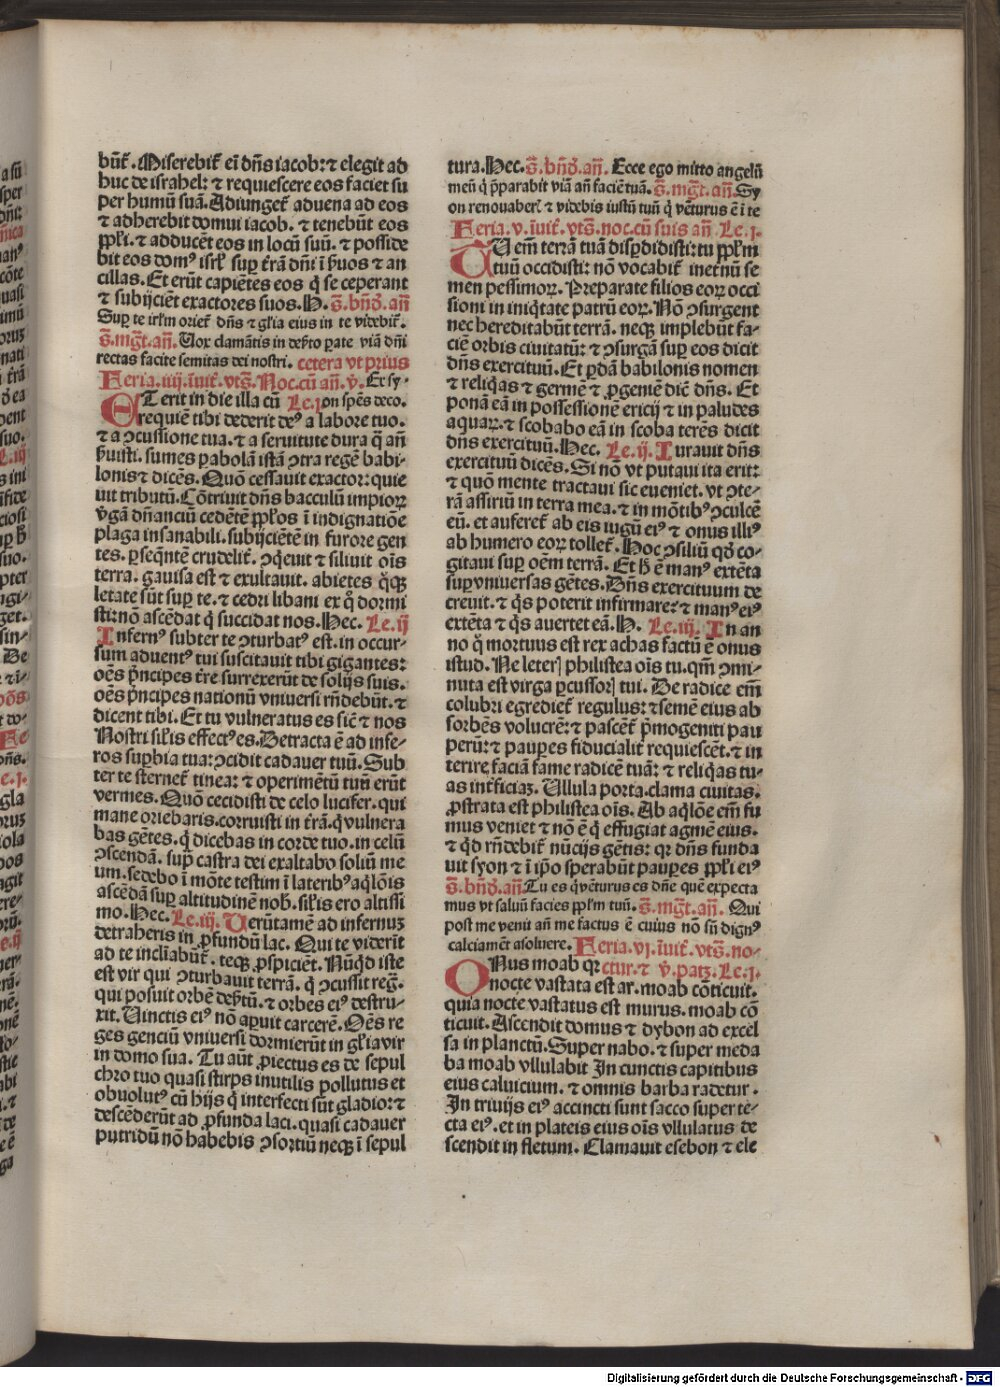 būt᷑. Miserebit᷑ ei dn̄s iacob: ⁊ elegit ad
huc de israhel: ⁊ requiescere eos faciet su
per humū suā. Adiunget᷑ aduena ad eos
⁊ adherebit domui iacob. ⁊ tenebūt eos
ppl̄i. ⁊ adducēt eos in locū suū. ⁊ posside
bit eos domꝰ isrl̄ suꝑ t᷑rā dn̄i ī ẜuos ⁊ an
cillas. Et erūt capiētes eos q̇ se ceperant
⁊ subijciēt exactores suos. H. s̄. bn̄d̄. an̄
Suꝑ te irl̄m oriet᷑ dn̄s ⁊ gl̄ia eius in te videbit᷑.
s̄. mgt̄. an̄. Uox clamātis in deẜto ꝑate viā dn̄i
rectas facite semitas dei nostri. cetera vt prius
Feria. iiij. īuit᷑. vts̄. Noc. cū an̄. ꝟ. Ex sy-
ET erit in die illa cū Le. j on spēs deco.
requiē tibi dederit deꝰ a labore tuo.
⁊ a ꝯcussione tua. ⁊ a seruitute dura q̇ an̄
ẜuisti. sumes ꝑabolā istā ꝯtra regē babi-
lonis ⁊ dicēs. Quō cessauit exactor: quie
uit tributū. Cōtriuit dn̄s bacculū impioꝝ
ꝟgā dn̄anciū cedētē ppl̄os ī indignatiōe
plaga insanabili. subijciētē in furore gen
tes. ꝑseqn̄tē crudelit᷑. ꝯq̇euit ⁊ siliuit oīs
terra. gauisa est ⁊ exultauit. abietes q̄qꝫ
letate sūt suꝑ te. ⁊ cedri libani ex q̊ dormi
sti: nō ascēdat q̇ succidat nos. Hec. Le. ij
Infernꝰ subter te ꝯturbatꝰ est. in occur-
sum aduentꝰ tui suscitauit tibi gigantes:
oēs ṗncipes t᷑re surrexerūt de solijs suis.
oēs ṗncipes nationū vniuersi rn̄debūt. ⁊
dicent tibi. Et tu vulneratus es sic̄ ⁊ nos
Nostri sil̄is effectꝰ es. Detracta ē ad infe-
ros suꝑbia tua: ꝯcidit cadauer tuū. Sub
ter te sternet᷑ tinea: ⁊ operimētū tuū erūt
vermes. Quō cecidisti de celo lucifer. qui
mane oriebaris. corruisti in t᷑rā. q̇ vulnera
bas gētes. q̇ dicebas in corde tuo. in celū
ꝯscendā. supꝭ castra dei exaltabo soliū me
um. sedebo ī mōte testim ī lateribꝰ aq̇lōis
ascēdā suꝑ altitudinē nob̄. sil̄is ero altissi
mo. Hec. Le. iij. Uerūtamē ad infernuꝫ
detraheris in ꝓfundū lac. Qui te viderīt
ad te incl̄iabūt᷑. teqꝫ ꝓspiciēt. Nūq̇d iste
est vir qui ꝯturbauit terrā. q̇ ꝯcussit reg̅.
qui posuit orbē deẜtū. ⁊ orbes eiꝰ destru-
xit. Uinctis eiꝰ nō aꝑuit carcerē. Oēs re
ges genciū vniuersi dormierūt in gl̄ia vir
in domo sua. Tu aūt ꝓiectus es de sepul
chro tuo quasi stirps inutilis pollutus et
obuolutꝰ cū hijs q̇ interfecti sūt gladio: ⁊
descēderūt ad ꝓfunda laci. quasi cadauer
putridū nō habebis ꝯsortiū neqꝫ ī sepul
tura. Hec. s̄. bn̄d̄. an̄. Ecce ego mitto angelū
meū q̇ p̄parabit viā an̄ faciē tuā. s̄. mgt̄. an̄. Sy
on renouaberꝭ ⁊ videbis iustū tuū q̇ vēturus ē ī te
Feria. v. īuit᷑. vts̄. noc. cū suis an̄ Le. j.
TUem̄ terrā tuā disꝑdidisti: tu ppl̄m
tuū occidisti: nō vocabit᷑ inet᷑nū se
men pessimoꝝ. Preparate filios eoꝝ occi
sioni in iniq̇tate patrū eoꝝ. Nō ꝯsurgent
nec hereditabūt terrā. neqꝫ implebūt fa-
ciē orbis ciuitatū: ⁊ ꝯsurgā suꝑ eos dicit
dn̄s exercituū. Et ꝑdā babilonis nomen
⁊ reliq̇as ⁊ germē ⁊ ꝓgeniē dic̄ dn̄s. Et
ponā eā in possessionē ericij ⁊ in paludes
aquaꝝ. ⁊ scobabo eā in scoba terēs dicit
dn̄s exercituū. Hec. Le. ij. Iurauit dn̄s
exercituū dicēs. Si nō vt putaui ita erit:
⁊ quō mente tractaui sic eueniet. vt ꝯte-
rā assiriū in terra mea. ⁊ in mōtibꝰ ꝯculcē
eū. et auferet᷑ ab eis iugū eiꝰ ⁊ onus illiꝰ
ab humero eoꝝ tollet᷑. Hoc ꝯsiliū qd̄ co-
gitaui suꝑ oēm terrā. Et h̄ ē manꝰ extēta
suꝑ vniuersas gētes. Dn̄s exercituum de
creuit. ⁊ q̇s poterit infirmare: ⁊ manꝰ eiꝰ
extēta ⁊ q̇s auertet eā. H. Le. iij. In an
no q̊ mortuus est rex achas factū ē onus
istud. Ne leterꝭ philistea oīs tu. qm̄ ꝯmi-
nuta est virga ꝑcussorꝭ tui. De radice em̄
colubri egrediet᷑ regulus: ⁊ semē eius ab
sorbēs volucrē: ⁊ pascēt᷑ ṗmogeniti pau
perū: ⁊ pauꝑes fiducialit᷑ requiescēt. ⁊ in
terire faciā fame radicē tuā: ⁊ reliq̇as tu-
as int᷑ficiaꝫ. Ullula porta. clama ciuitas.
ꝓstrata est philistea oīs. Ab aq̇lōe em̄ fu
mus veniet ⁊ nō ē q̇ effugiat agmē eius.
⁊ q̇d rn̄debit᷑ nūcijs gētis: qꝛ dn̄s funda
uit syon ⁊ ī ip̄o sperabūt pauꝑes ppl̄i eiꝰ
s̄. bn̄d̄. an̄. Tu es q̇ vēturus es dn̄e quē expecta
mus vt saluū facies ppl̄m tuū. s̄. mgt̄. an̄. Qui
post me venit an̄ me factus ē cuius nō sū dignꝰ
calciamēt᷑ asoluere. Feria. vj. īuit᷑. vts̄. no-
ONus moab qꝛ ctur. ⁊ ꝟ. patꝫ. Le. j.
nocte vastata est ar. moab cōticuit.
quia nocte vastatus est murus. moab cō
ticuit. Ascendit domus ⁊ dybon ad excel
sa in planctū. Super nabo. ⁊ super meda
ba moab vllulabit In cunctis capitibus
eius caluicium. ⁊ omnis barba radetur.
In triuijs eiꝰ accincti sunt sacco super te-
cta eiꝰ. et in plateis eius oīs vllulatus de
scendit in fletum. Clamauit esebon ⁊ ele
Digitalisierung gefördert durch die Deutsche Forschungsgemeinschaft - DFG